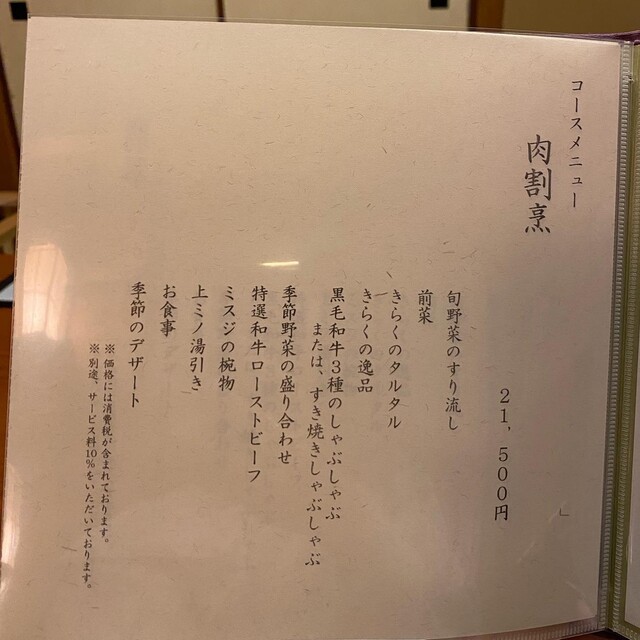 コースメニュー
肉割烹
21,500円
旬野菜のすり流し
前菜
きらくのタルタル
きらくの逸品
黒毛和牛3種のしゃぶしゃぶ
または、すき焼きしゃぶしゃぶ
季節野菜の盛り合わせ
特選和牛ローストビーフ
ミスジの椀物
上ミノ湯引き
お食事
季節のデザート
※価格には消費税が含まれております。
※別途、サービス料10%をいただいております。